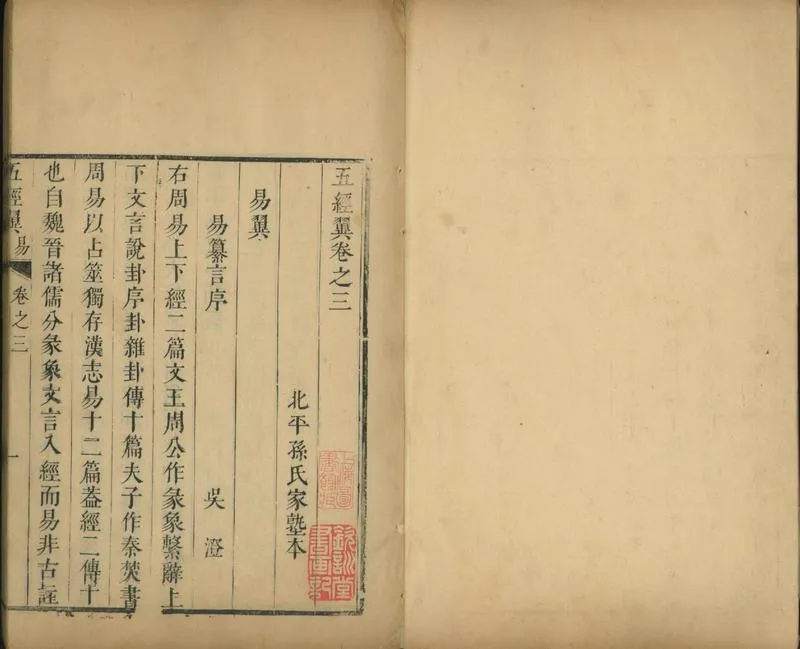 五經翼卷之三
北平孫氏家塾本
易翼
易纂言序
吳澄
右周易上下經二篇文王周公作彖象繫辭上
下文言說卦序卦雜卦傳十篇夫子作秦焚書
周易以占筮獨存漢志易十二篇葢經二傳十
也自魏晉諸儒分彖象文言入經而易非古註
五經翼 易
卷之三
一